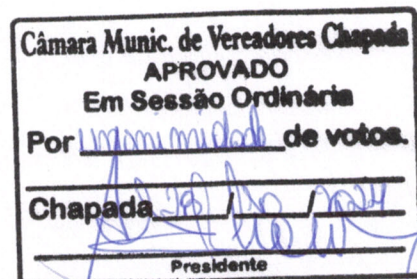 Câmara Munic. de Vereadores Chapada
APROVADO
Em Sessão Ordinária
Por unanimidade de votos.
Chapada 28 / / 2024
Presidente